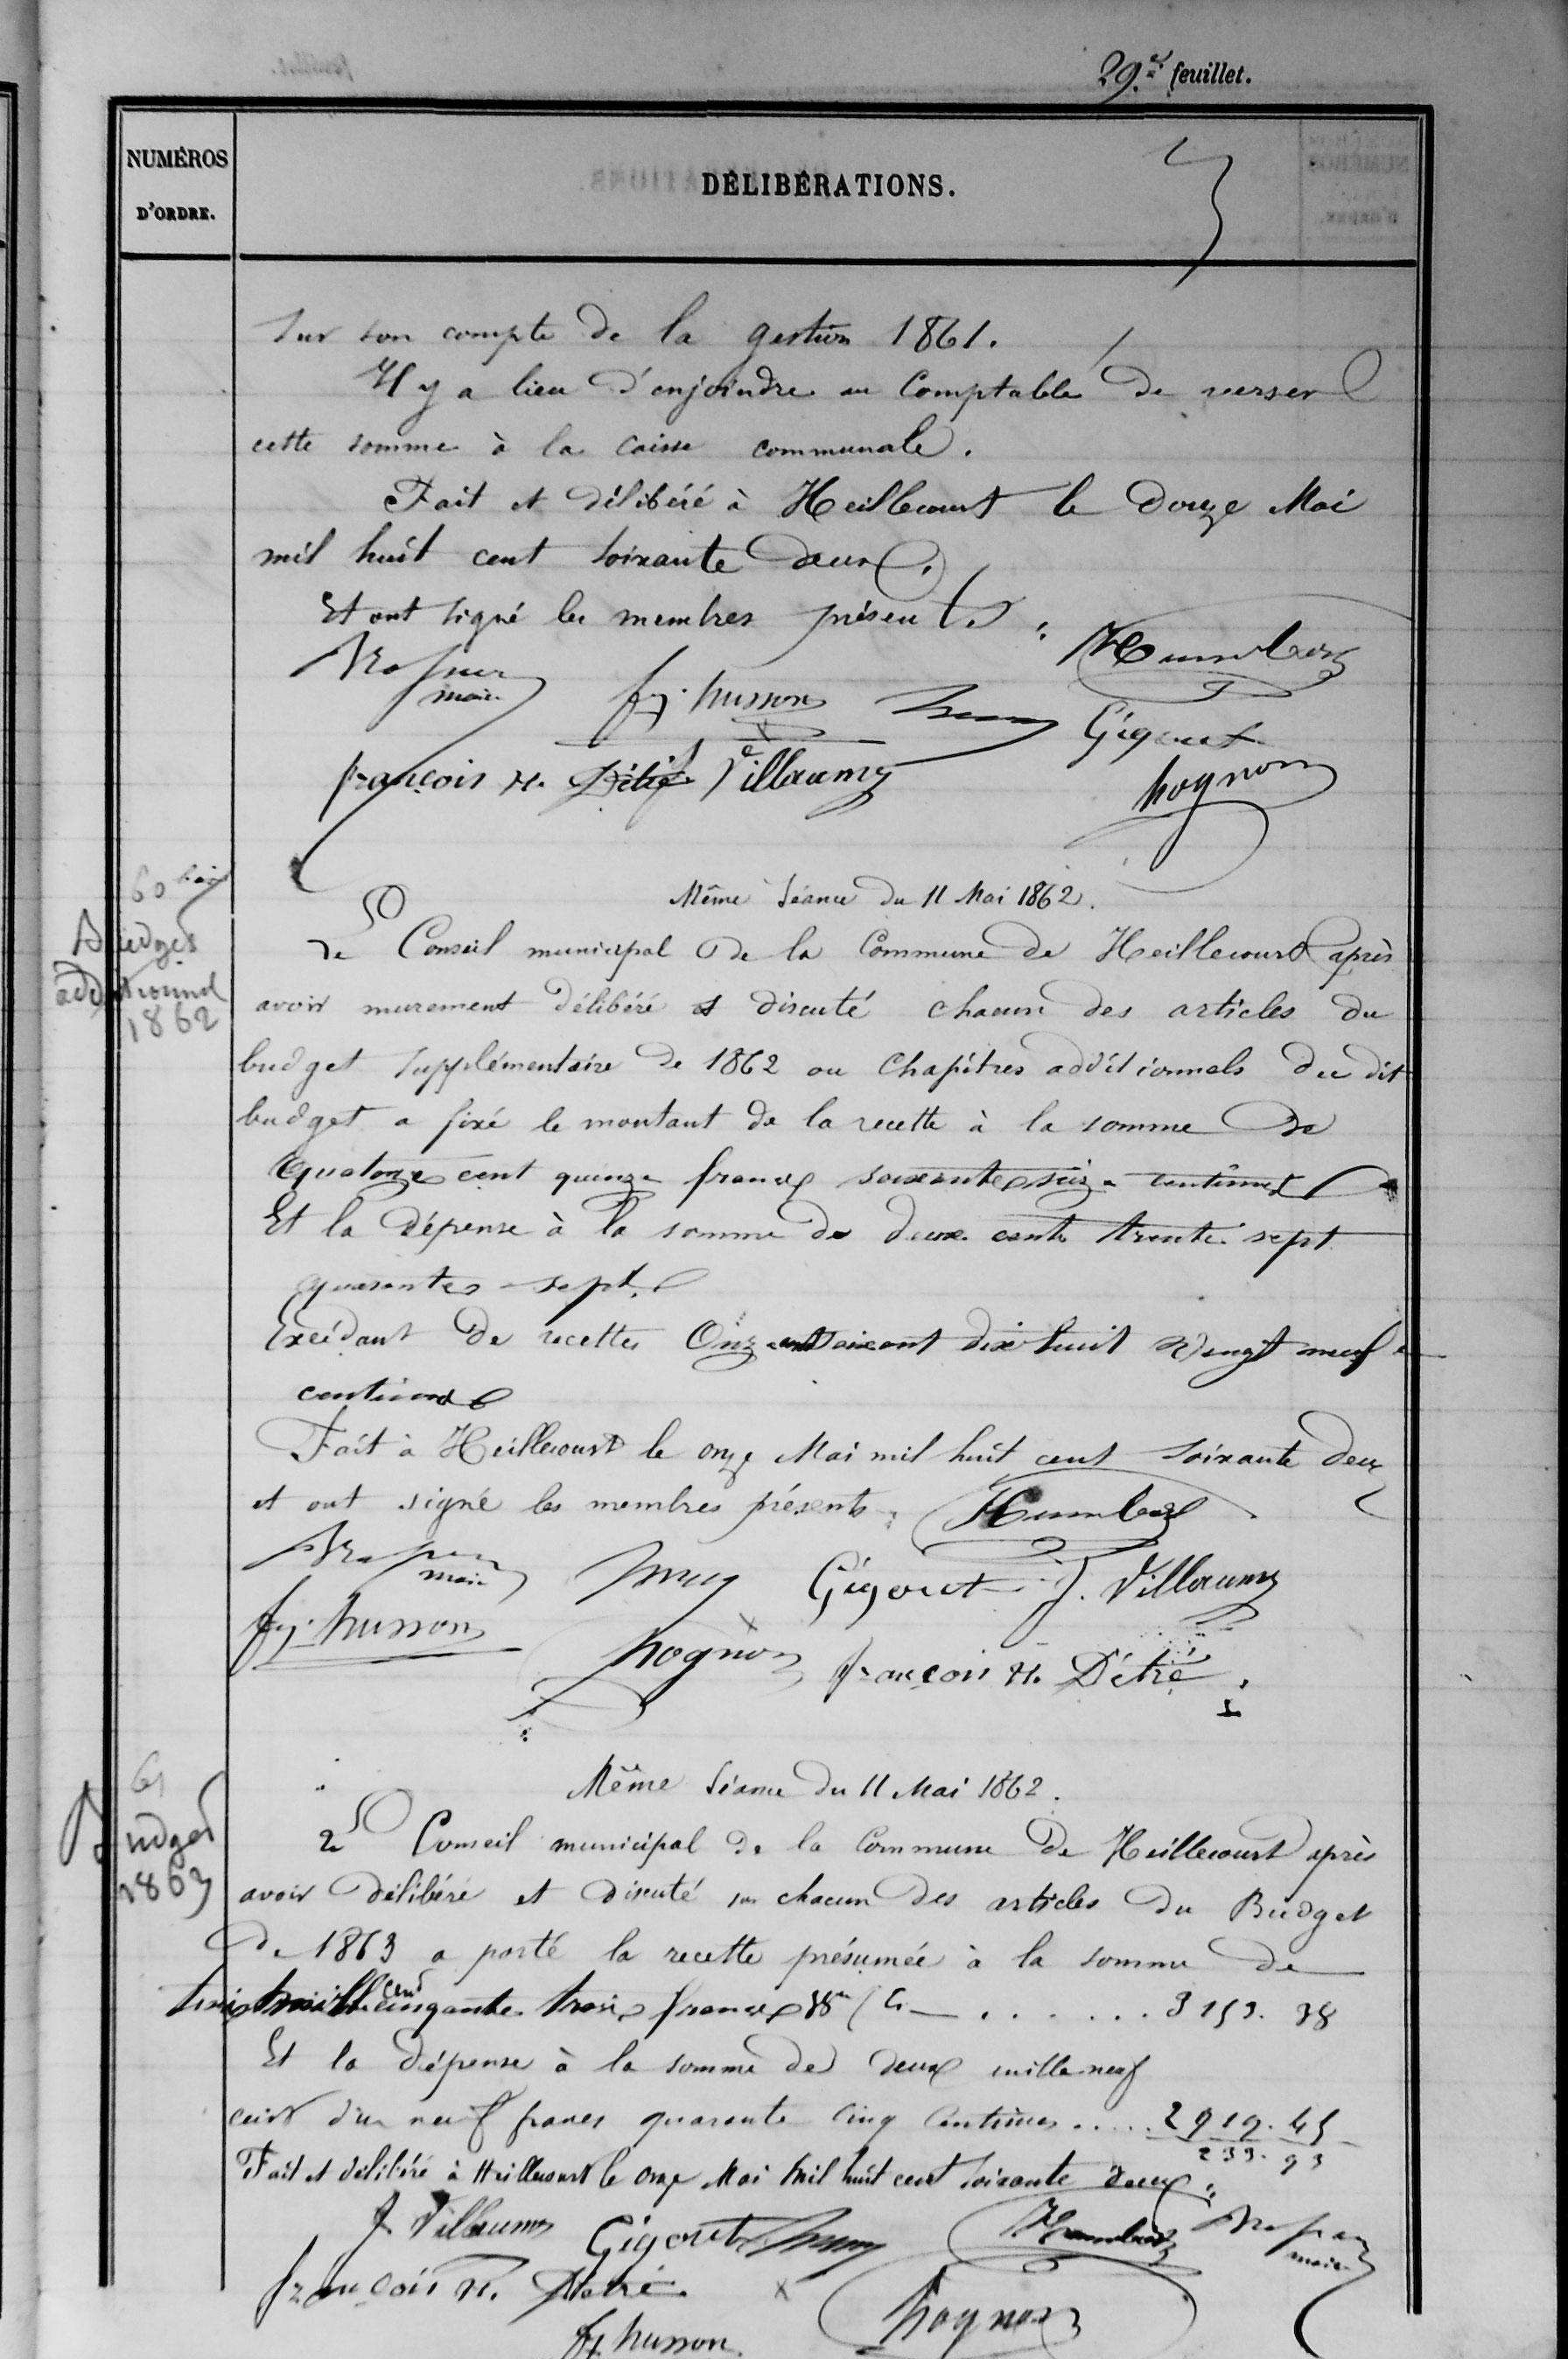 29.e feuillet.
NUMÉROS
D'ORDRE.
DÉLIBÉRATIONS.
sur son compte de la gestion 1861.
Il y a lieu d'enjoindre au Comptable de verser
cette somme à la caisse communale.
Fait et délibéré à Heillecourt le douze Mai
mil huit cent soixante deux.
Et ont signé les membres présents.
Humbert
maire
fj. husson
Gigout
françois H. Détré J Villaumé
hognon
60 bis
Budget
additionnel
1862
Même Séance du 11 Mai 1862.
Le Conseil municipal de la Commune de Heillecourt après
avoir murement délibéré et discuté chacun des articles du
budget supplémentaire de 1862 ou Chapitres additionnels du dit
budget a fixé le montant de la recette à la somme de
Quatorze cent quinze francs soixante seize centimes
Et la dépense à la somme de deux cents trente sept
quarante-sept.
Excédant de recettes Onze cent soixant dix huit vingt neuf
centimes
Fait à Heillecourt le onze Mai mil huit cent soixante deux
et ont signé les membres présents. Humbert
maire
Gigout J. Villaumé
fj. husson
hognon
françois H. Détré
61
Budget
1863
Même Séance du 11 Mai 1862.
Le Conseil municipal de la Commune de Heillecourt après
avoir délibéré et discuté sur chacun des articles du Budget
de 1863 a porté la recette présumée à la somme de
trois mille cent cinqante trois francs 38 c. ...... 3153. 38
Et la dépense à la somme de deux mille neuf
cent dix neuf francs quarante cinq centimes .... 2919. 45
233. 93
Fait et délibéré à Heillecourt le onze Mai mil huit cent soixante deux.
J Villaumé Gigout Humbert
maire
françois H. Détré
hognon
fj husson